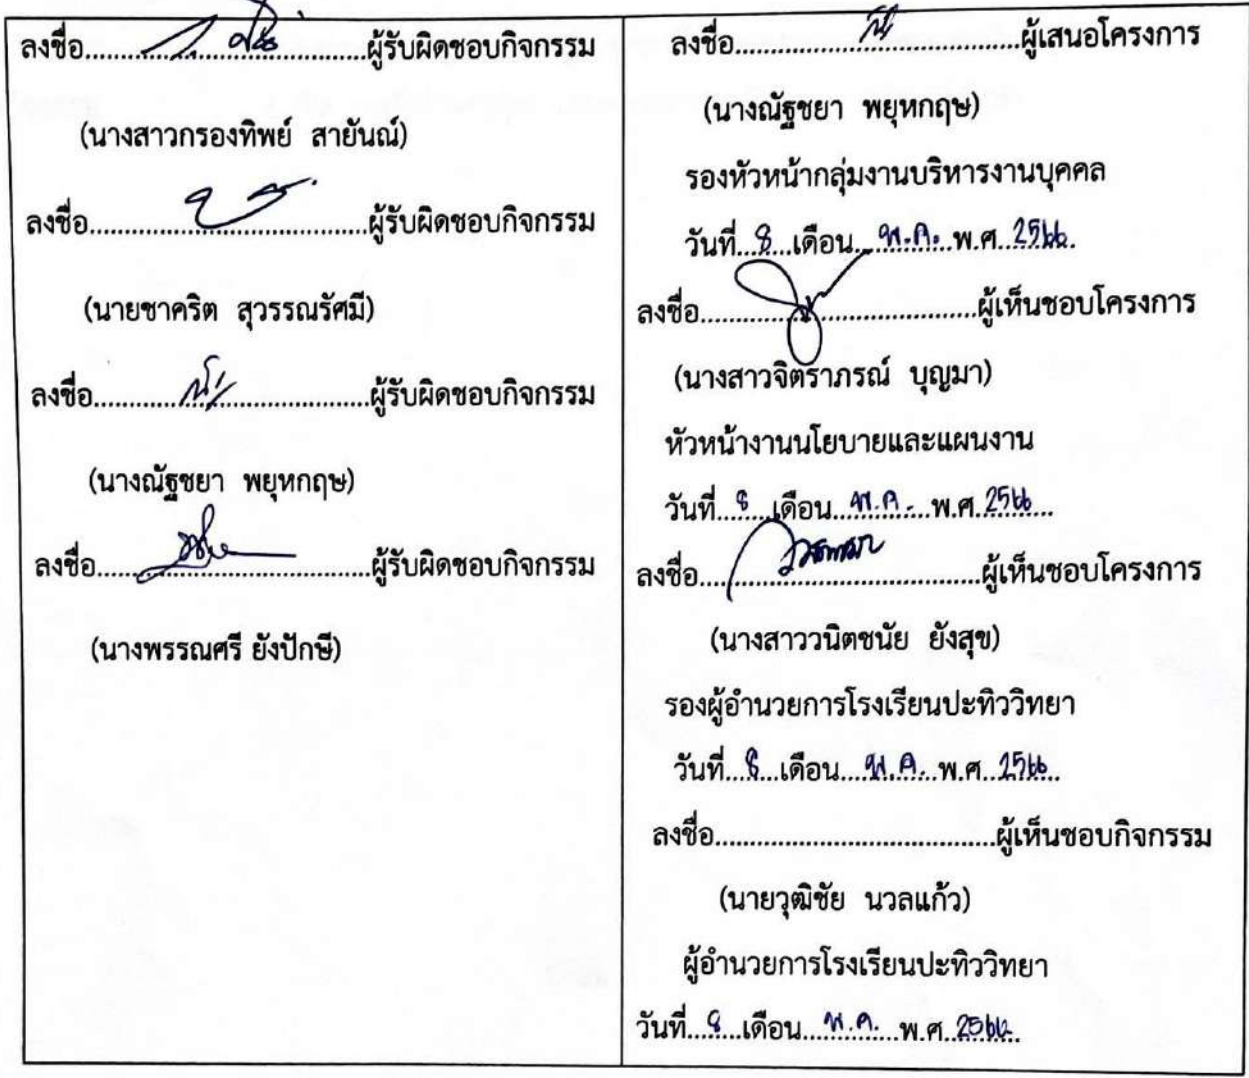 ลงชื่อ..........ผู้รับผิดชอบกิจกรรม
(นางสาวกรองทิพย์ สายันณ์)
ลงชื่อ..........ผู้รับผิดชอบกิจกรรม
(นายชาคริต สุวรรณรัศมี)
ลงชื่อ..........ผู้รับผิดชอบกิจกรรม
(นางณัฐชยา พยุหกฤษ)
ลงชื่อ..........ผู้รับผิดชอบกิจกรรม
(นางพรรณศรี ยังปักษี)
ลงชื่อ..........ผู้เสนอโครงการ
(นางณัฐชยา พยุหกฤษ)
รองหัวหน้ากลุ่มงานบริหารงานบุคคล
วันที่...8...เดือน...พ.ค....พ.ศ...2566...
ลงชื่อ..........ผู้เห็นชอบโครงการ
(นางสาวจิตราภรณ์ บุญมา)
หัวหน้างานนโยบายและแผนงาน
วันที่...8...เดือน...พ.ค....พ.ศ...2566...
ลงชื่อ..........ผู้เห็นชอบโครงการ
(นางสาววนิตชนัย ยังสุข)
รองผู้อำนวยการโรงเรียนปะทิววิทยา
วันที่...8...เดือน...พ.ค....พ.ศ...2566...
ลงชื่อ..........ผู้เห็นชอบกิจกรรม
(นายวุฒิชัย นวลแก้ว)
ผู้อำนวยการโรงเรียนปะทิววิทยา
วันที่...8...เดือน...พ.ค....พ.ศ...2566...